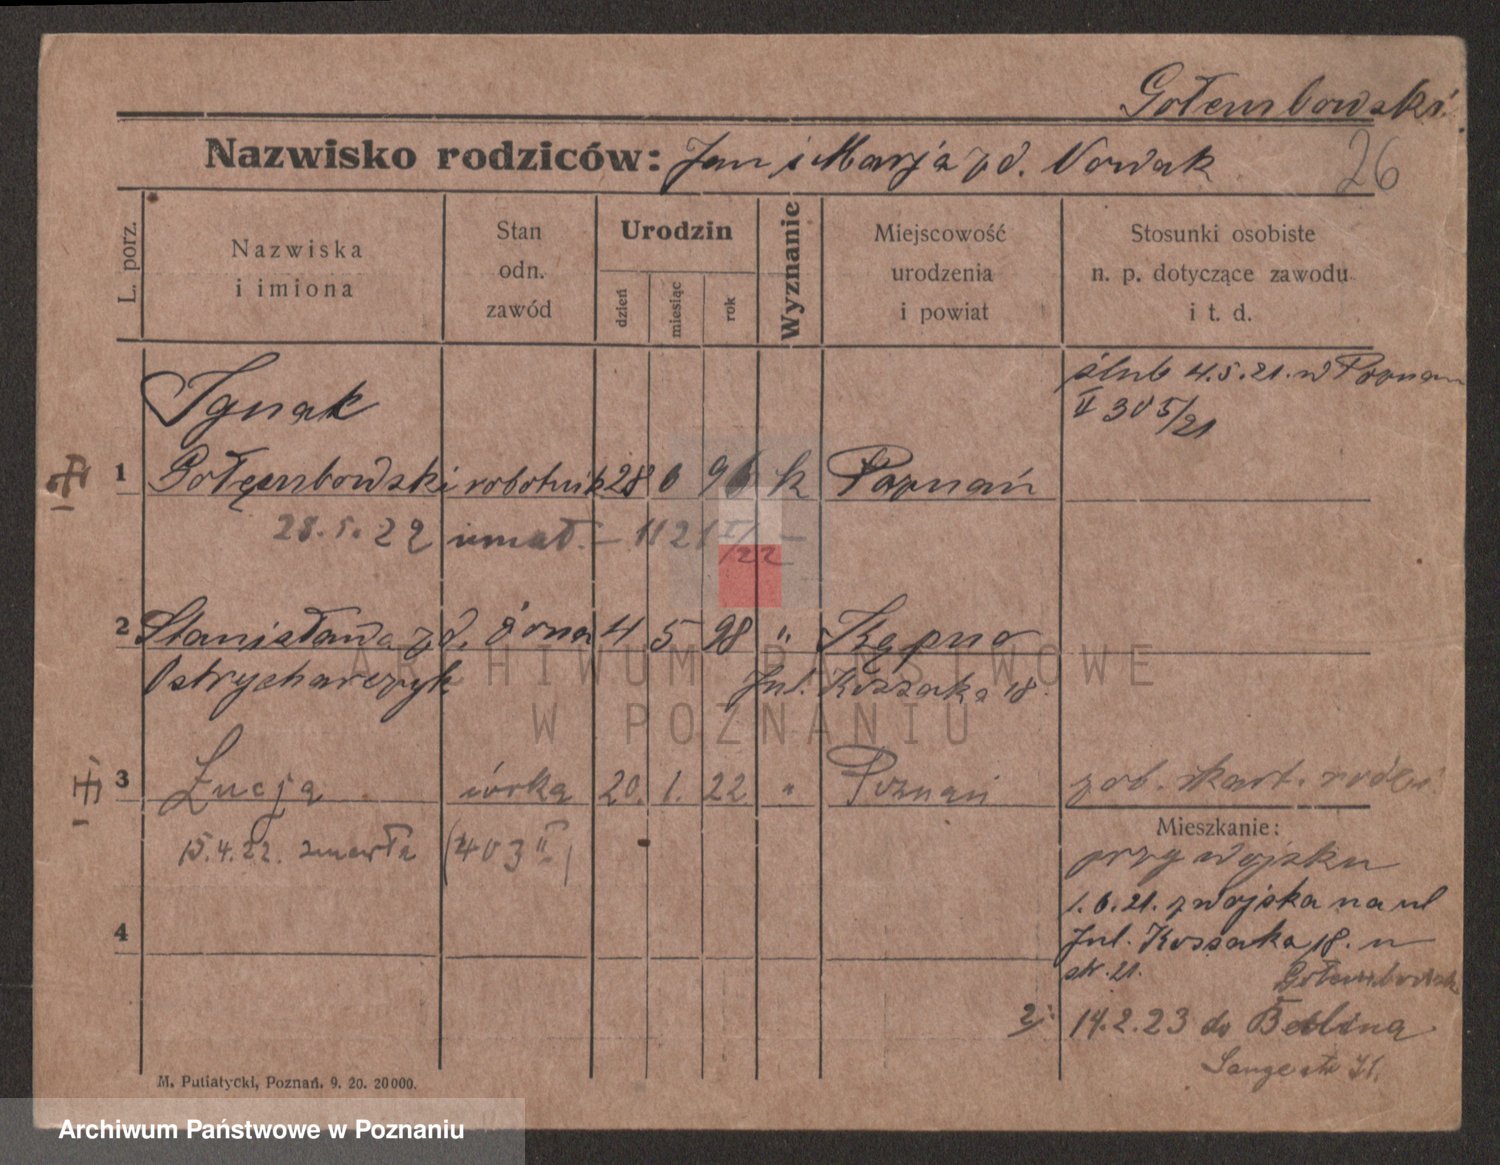 Gołembowski
Nazwisko rodziców: Jan i Marja zd. Nowak
26
L. porz.
Nazwiska
i imiona
Stan
odn.
zawód
Urodzin
dzień
miesiąc
rok
Wyznanie
Miejscowość
urodzenia
i powiat
Stosunki osobiste
n. p. dotyczące zawodu
i t. d.
ślub 4.5.21. w Poznan
II 305/21
Ignak
1 Gołęmbowski robotnik 28 6 96 k Poznań
28.5.22 umarł. – 1121 I/22 –
2 Stanisława zd. żona 4 5 98 " Kępno
Ostrycharczyk Jul. Kossaka 18.
ARCHIWUM PAŃSTWOWE
W POZNANIU
3 Łucja córka 20. 1. 22 " Poznań zob. kart. rodzic.
15.4.22. zmarła (403 II)
Mieszkanie:
przy wojsku
1.6.21. z wojska na ul
4
Jul. Kossaka 18. u
str. 21. Gołembowsk
2) 14.2.23 do Berlina
Langestr 71.
M. Putiatycki, Poznań. 9. 20. 20000.
Archiwum Państwowe w Poznaniu